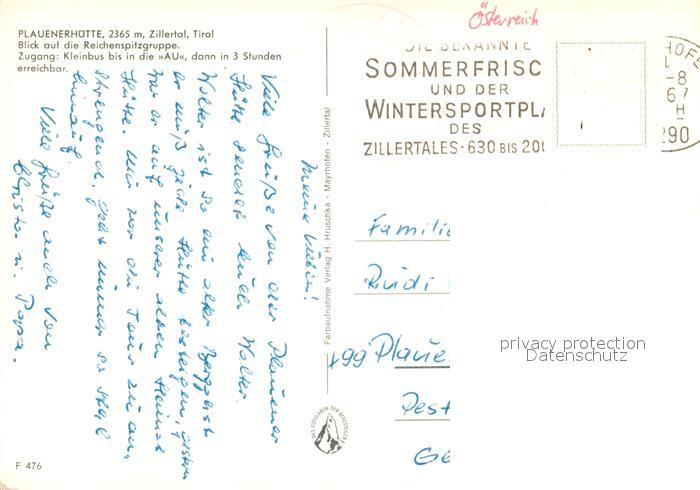 PLAUENERHÜTTE, 2365 m, Zillertal, Tirol
Blick auf die Reichenspitzgruppe.
Zugang: Kleinbus bis in die »AU«, dann in 3 Stunden
erreichbar.
Österreich
DIE BEKANNTE
SOMMERFRISC
UND DER
WINTERSPORTPLA
DES
ZILLERTALES · 630 BIS 200
HOFE
-8
67
H
290
Meine Lieben!
Viele Grüße von der Plauener
Hütte sendet Euch Walter.
Walter ist so ein alter Berggeist
er muß jede Hütte besteigen, gestern
war er auf unserer alten
Hütte. Mir war die Tour zu an-
strengend, geht immer so steil
hinauf.
Viele Grüße auch von
Christa u. Papa.
Farbaufnahme Verlag H. Hruschka - Mayrhofen - Zillertal
Familie
Rudi
99 Plaue
Pest
Ge
privacy protection
Datenschutz
F 476